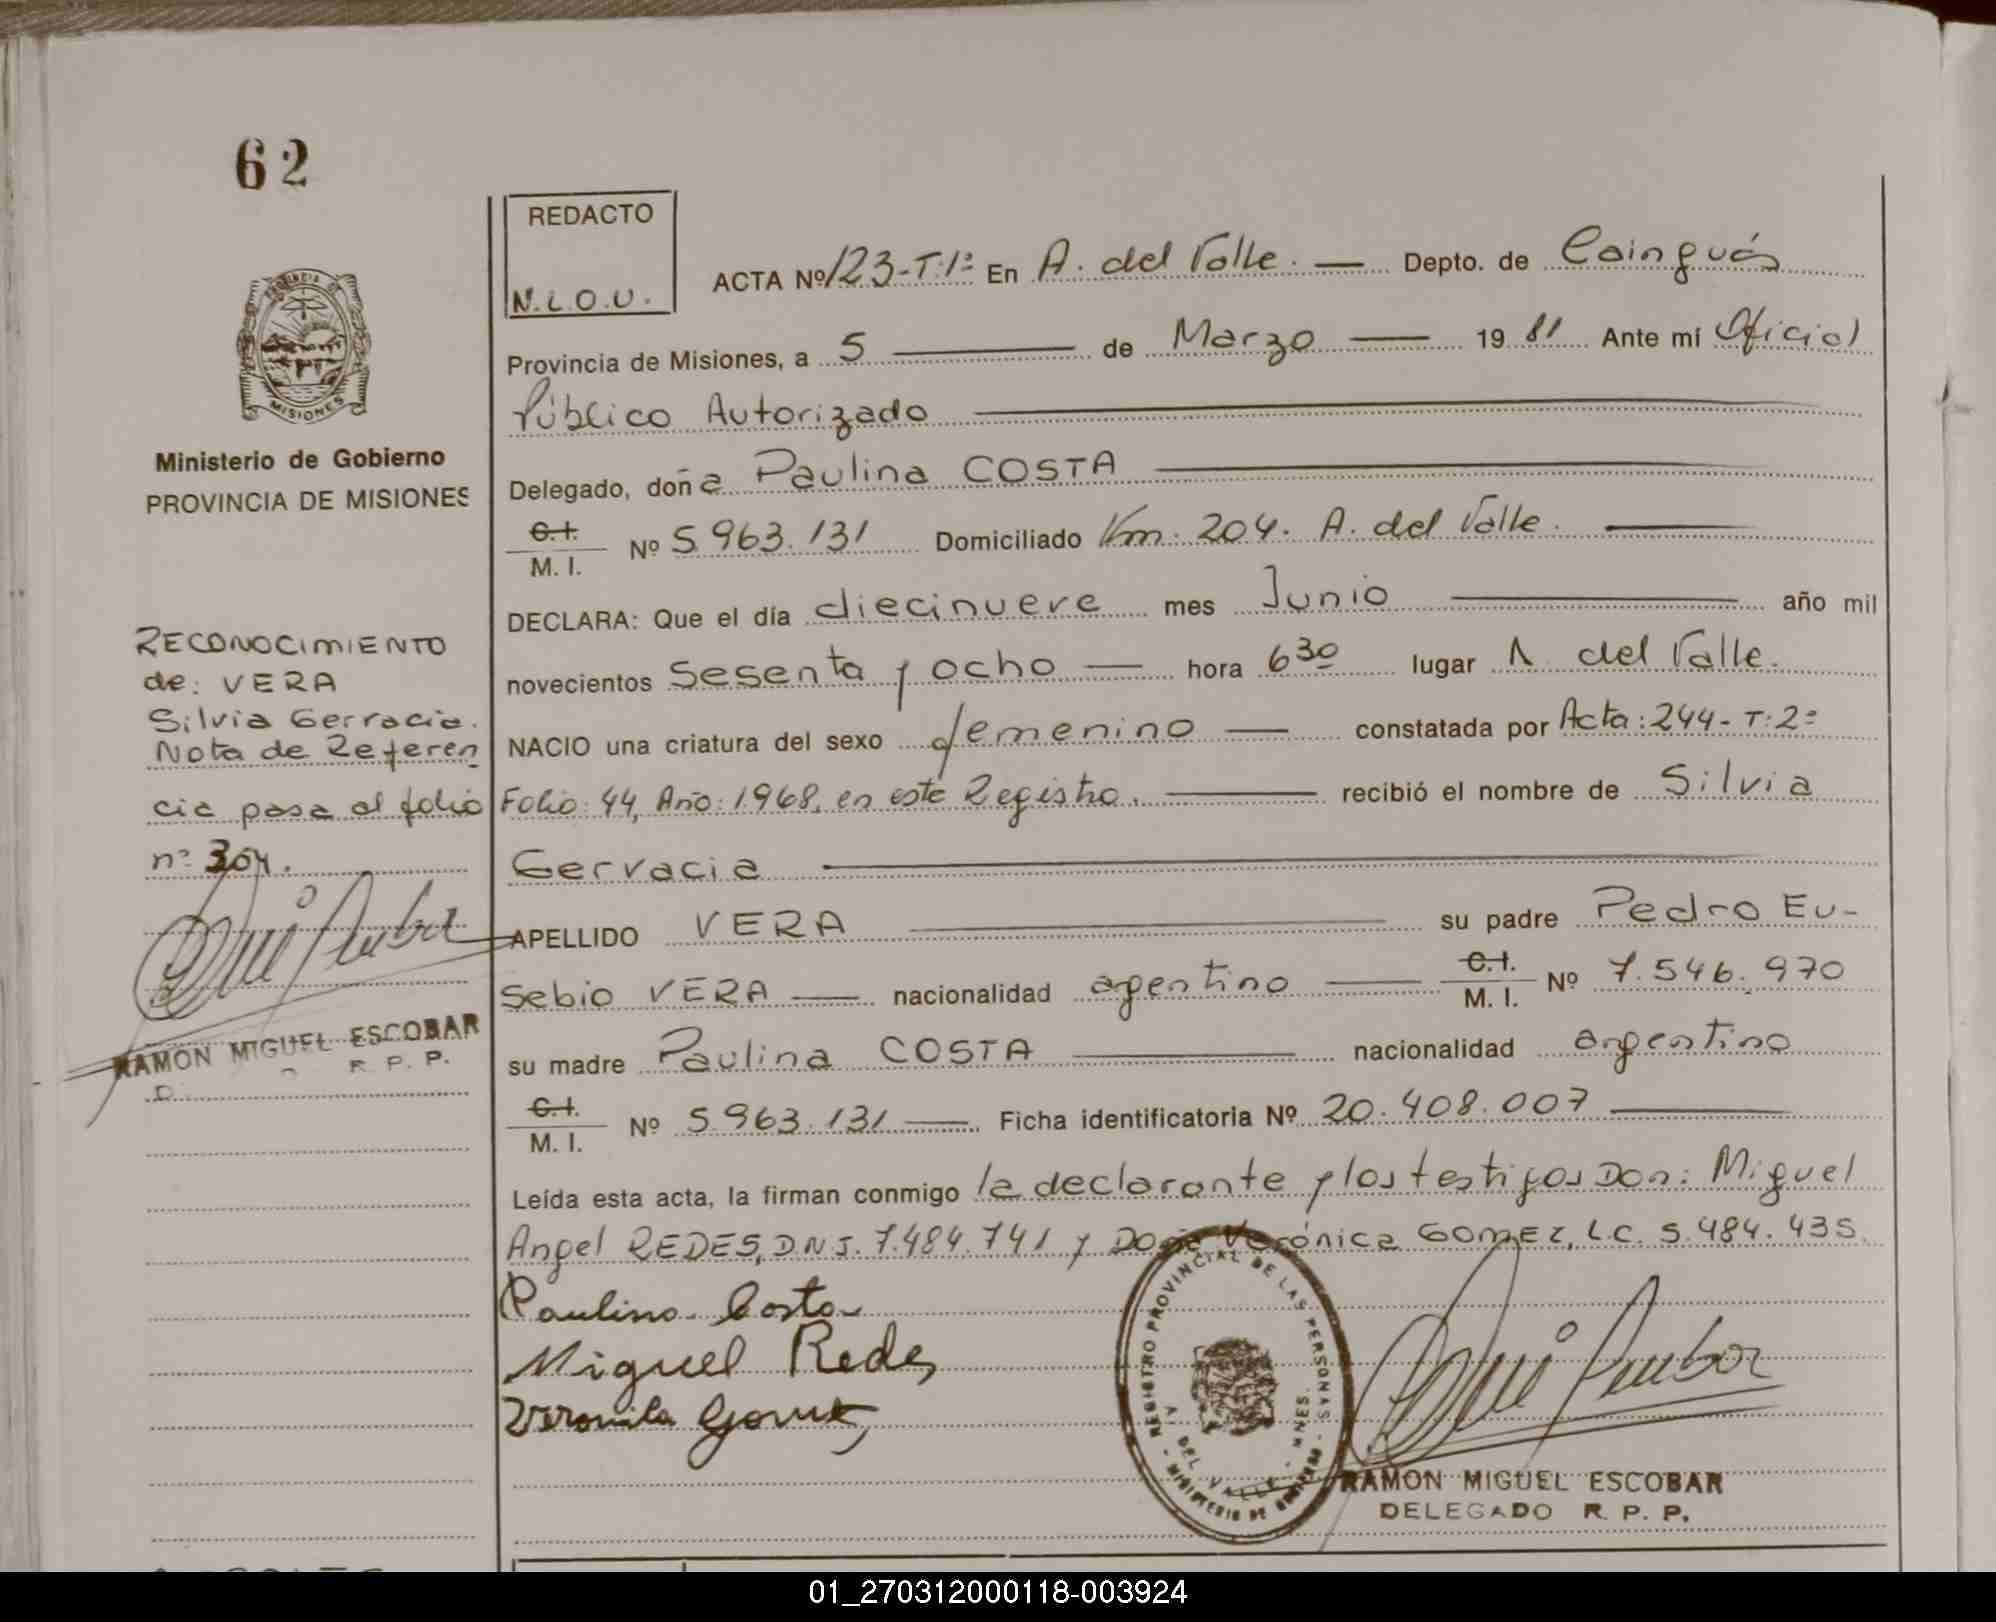 62
REDACTO
N.L.O.U.
ACTA Nº 123-T:1º En A. del Valle. Depto. de Cainguás
Provincia de Misiones, a 5 de Marzo 19 81 Ante mí Oficial
Público Autorizado
Delegado, doña Paulina COSTA
C.I. M. I. Nº 5.963.131 Domiciliado Km. 204. A. del Valle.
DECLARA: Que el día diecinueve mes Junio año mil
novecientos sesenta y ocho hora 6 30 lugar A. del Valle.
NACIO una criatura del sexo femenino constatada por Acta: 244- T: 2º
Folio: 44, Año: 1968, en este Registro. recibió el nombre de Silvia
Gervacia
APELLIDO VERA su padre Pedro Eu-
sebio VERA nacionalidad argentino C.I. M. I. Nº 7.546.970
su madre Paulina COSTA nacionalidad argentino
C.I. M. I. Nº 5.963.131 Ficha identificatoria Nº 20.408.007
Leída esta acta, la firman conmigo la declarante y los testigos Don: Miguel
Angel REDES, D.N.I. 7.484.741 y Doña Verónica GOMEZ, L.C. 5.484.435.
Paulina Costa
Miguel Redes
REGISTRO PROVINCIAL DE LAS PERSONAS - MINISTERIO DE GOBIERNO
A. DEL VALLE - MNES.
RAMON MIGUEL ESCOBAR
DELEGADO R. P. P.
PROVINCIA DE
MISIONES
Ministerio de Gobierno
PROVINCIA DE MISIONES
RECONOCIMIENTO
de: VERA
Silvia Gervacia.
Nota de Referen
cia pasa al folio
nº 304.
RAMON MIGUEL ESCOBAR
R. P. P.
01_270312000118-003924